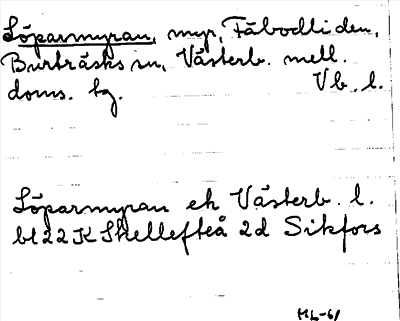 Löparmyran, myr, Fäbodliden,
Burträsks sn, Västerb. mell.
doms. bg. Vb. l.
Löparmyran ek Västerb. l.
bl 22 K Skellefteå 2d Sikfors
HL-61